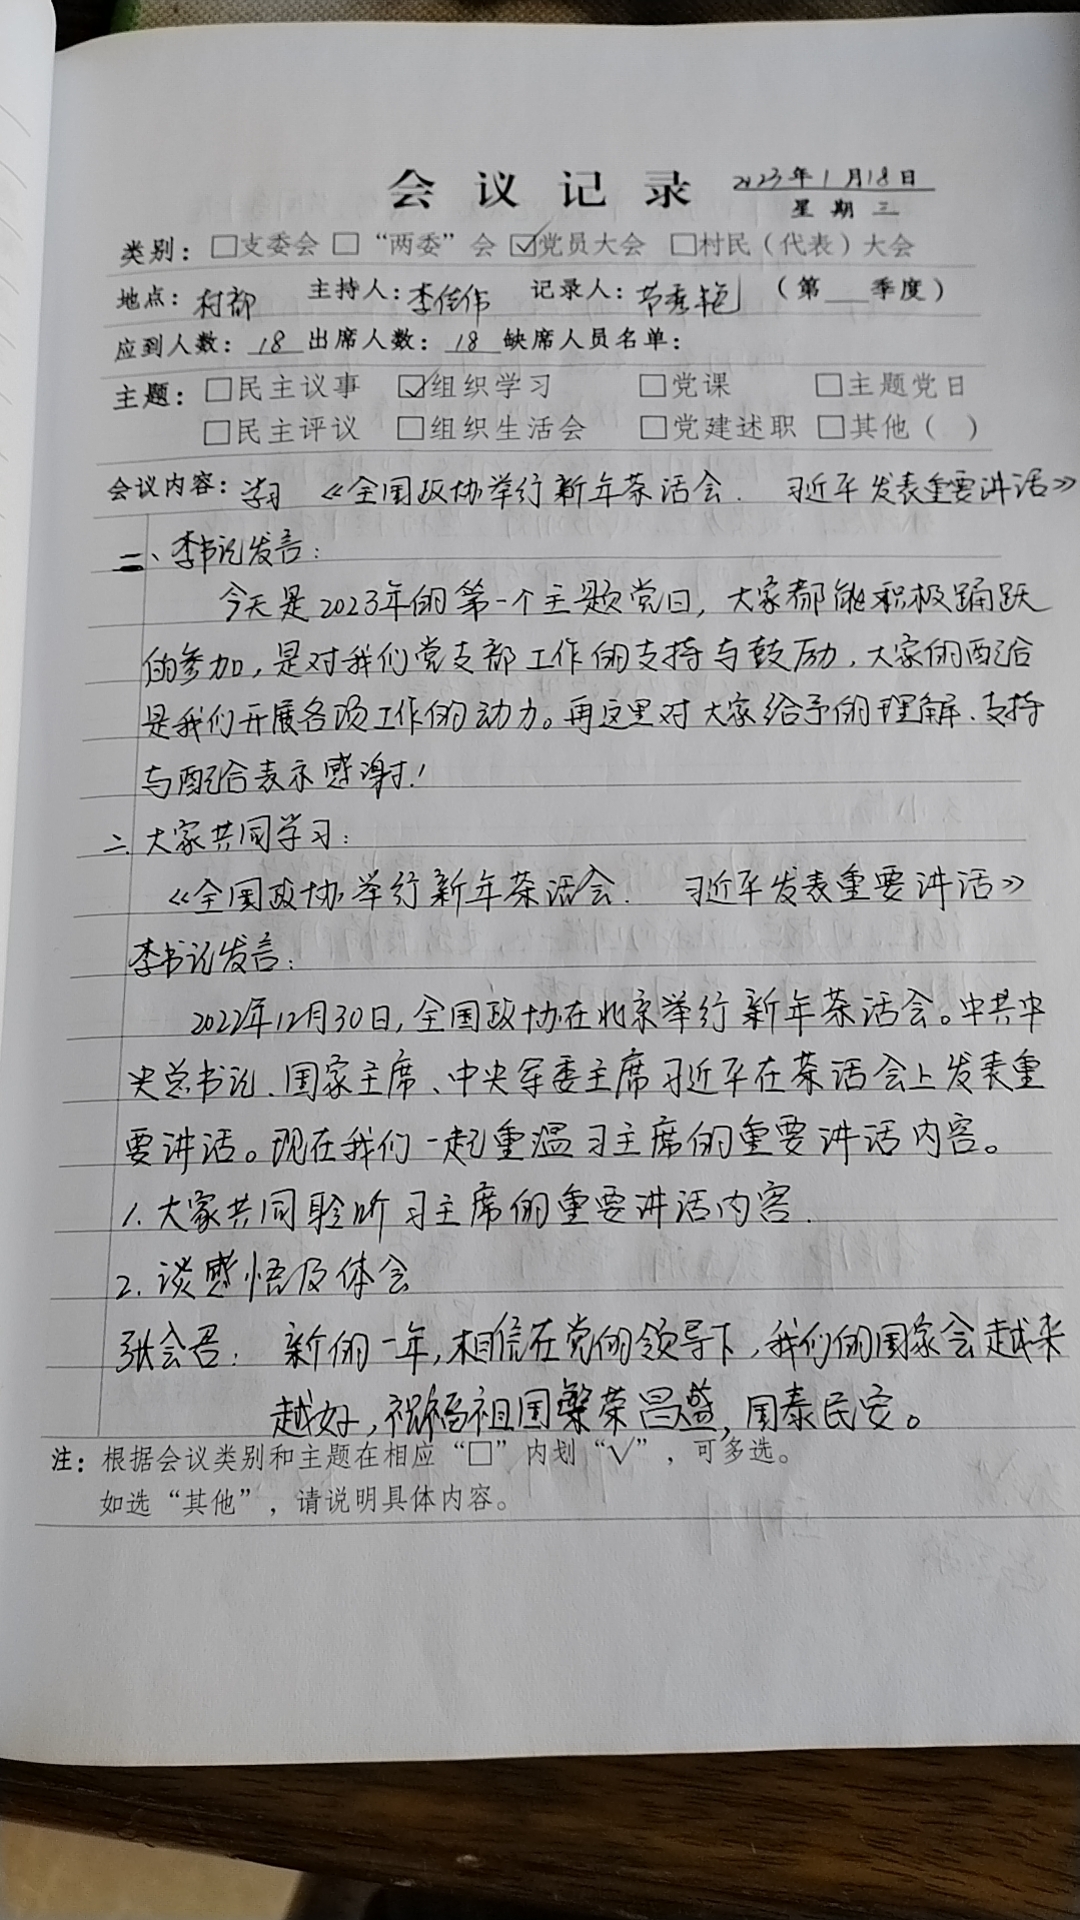 会议记录 2023年1月18日
星期三
类别：□支委会 □“两委”会 ☑党员大会 □村民（代表）大会
地点：村部 主持人：李佳伟 记录人：秀艳 （第 季度）
应到人数：18 出席人数：18 缺席人员名单：
主题：□民主议事 ☑组织学习 □党课 □主题党日
□民主评议 □组织生活会 □党建述职 □其他（ ）
会议内容：学习《全国政协举行新年茶话会. 习近平发表重要讲话》
一、李书记发言：
今天是2023年的第一个主题党日，大家都能积极踊跃
的参加，是对我们党支部工作的支持与鼓励，大家的配合
是我们开展各项工作的动力。再这里对大家给予的理解、支持
与配合表示感谢！
二、大家共同学习：
《全国政协举行新年茶话会. 习近平发表重要讲话》
李书记发言：
2022年12月30日，全国政协在北京举行新年茶话会。中共中
央总书记、国家主席、中央军委主席习近平在茶话会上发表重
要讲话。现在我们一起重温习主席的重要讲话内容。
1.大家共同聆听习主席的重要讲话内容.
2.谈感悟及体会
张会君：新的一年，相信在党的领导下，我们的国家会越来
越好，祝福祖国繁荣昌盛，国泰民安。
注：根据会议类别和主题在相应“□”内划“√”，可多选。
如选“其他”，请说明具体内容。